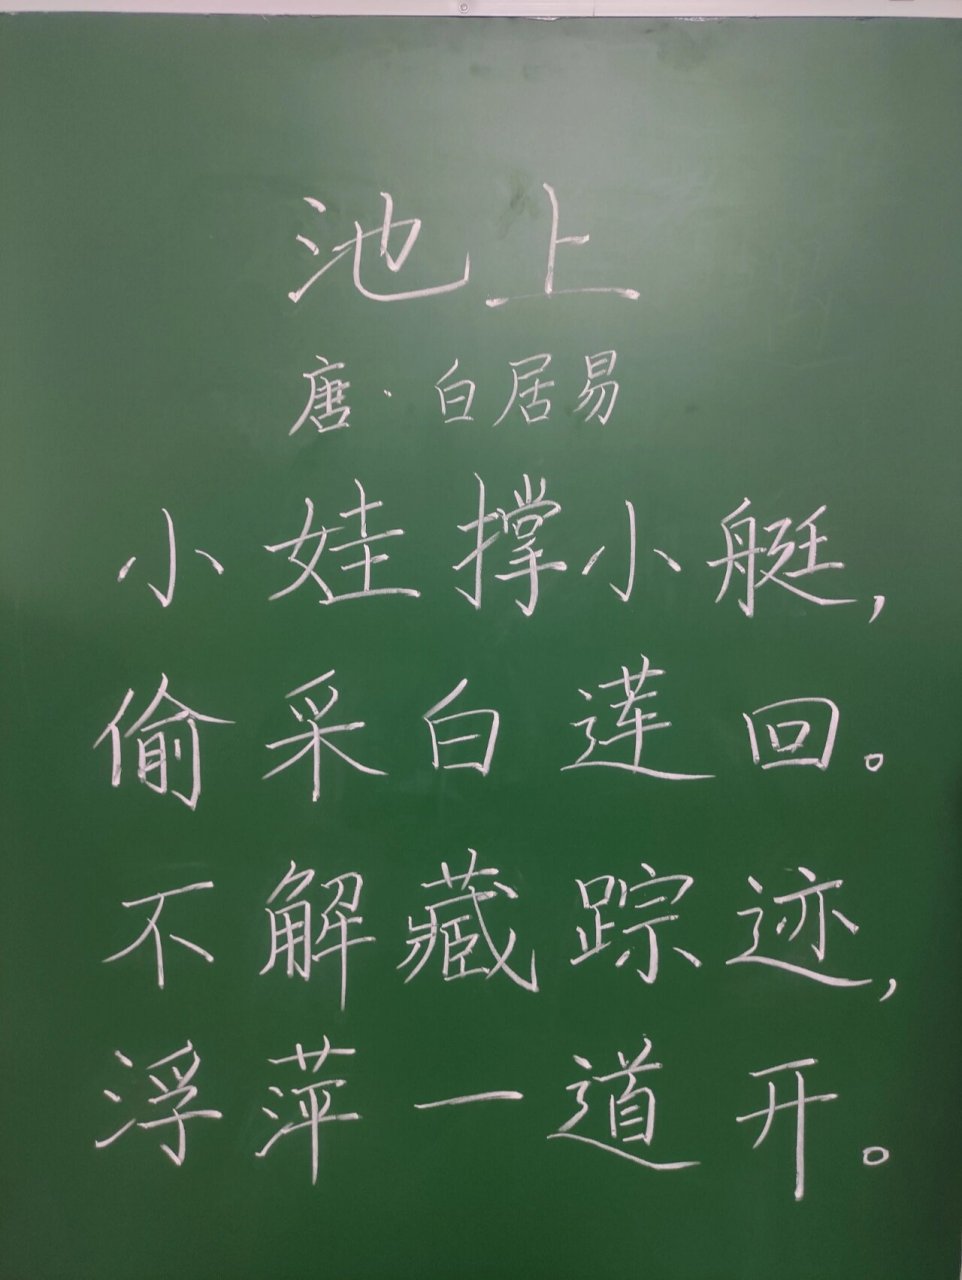 池上
唐·白居易
小娃撑小艇,
偷采白莲回。
不解藏踪迹,
浮萍一道开。